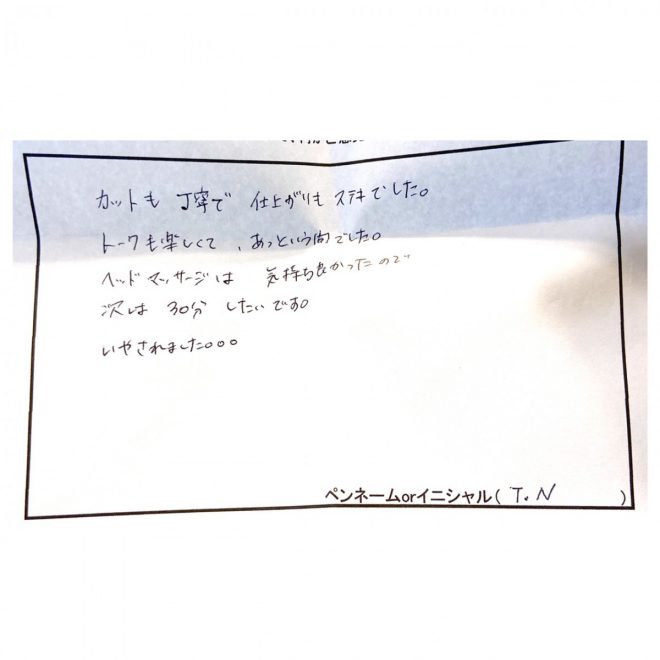 カットも 丁寧で 仕上がりも ステキでした。
トークも楽しくて、あっという間でした。
ヘッドマッサージは 気持ち良かったので
次は 30分 したいです。
いやされました。。。
ペンネームorイニシャル( T.N )